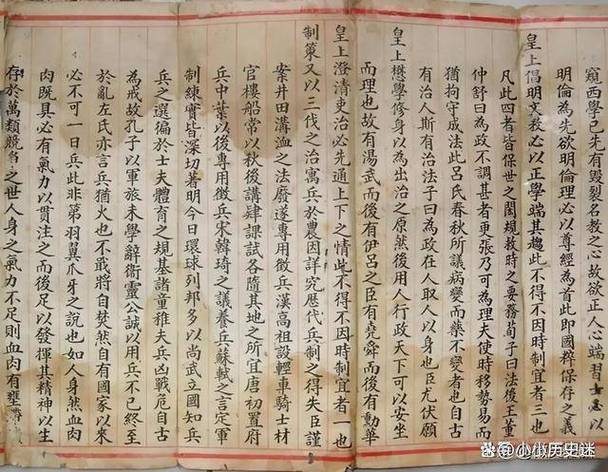 窺西學已先有毀裂名教之心故欲正人心端習士息以
明倫為先欲明倫理必以尊經為首此即國粹保存之義
皇上倡明文教必以正學端其趨此不得不因時制宜者三也
凡此四者皆保世之閎規救時之要務荀子曰法後王董
仲舒曰為政不調甚者更張乃可為理夫使時移勢易而
猶拘守成法此呂氏春秋所譏病變而藥不變者也自古
有治人斯有治法子曰為政在人取人以身也臣尤伏願
皇上懋學修身以為出治之原然後用人行政天下可以安坐
而理也故有湯武而後有伊呂之臣有堯舜而後有勳華
皇上澄清吏治必先通上下之情此不得不因時制宜者一也
制策又以三代之治寓兵於農因詳究歷代兵制之得失臣謹
案井田溝洫之法廢遂專用徵兵漢高祖設輕車騎士材
官樓船常以秋後講肄課試各隨其地之所宜唐初置府
兵中葉以後專用徵兵宋韓琦之議養兵蘇軾之言定軍
制練實皆深切著明今日環球列邦多以尚武立國知兵
兵之選徧於士夫體育之規基諸童稚夫兵凶戰危自古
為戒故孔子以軍旅未學辭衛靈公誠以用兵不已終至
於亂左氏亦言兵猶火也不戢將自焚然自有國家以來
必不可一日兵此非第羽翼爪牙之說也如人身然血肉
肉既具必有氣力以貫注之而後足以發揮其精神以生
存於萬類競爭之世人身之氣力不足則血肉有壅
小小历史迷